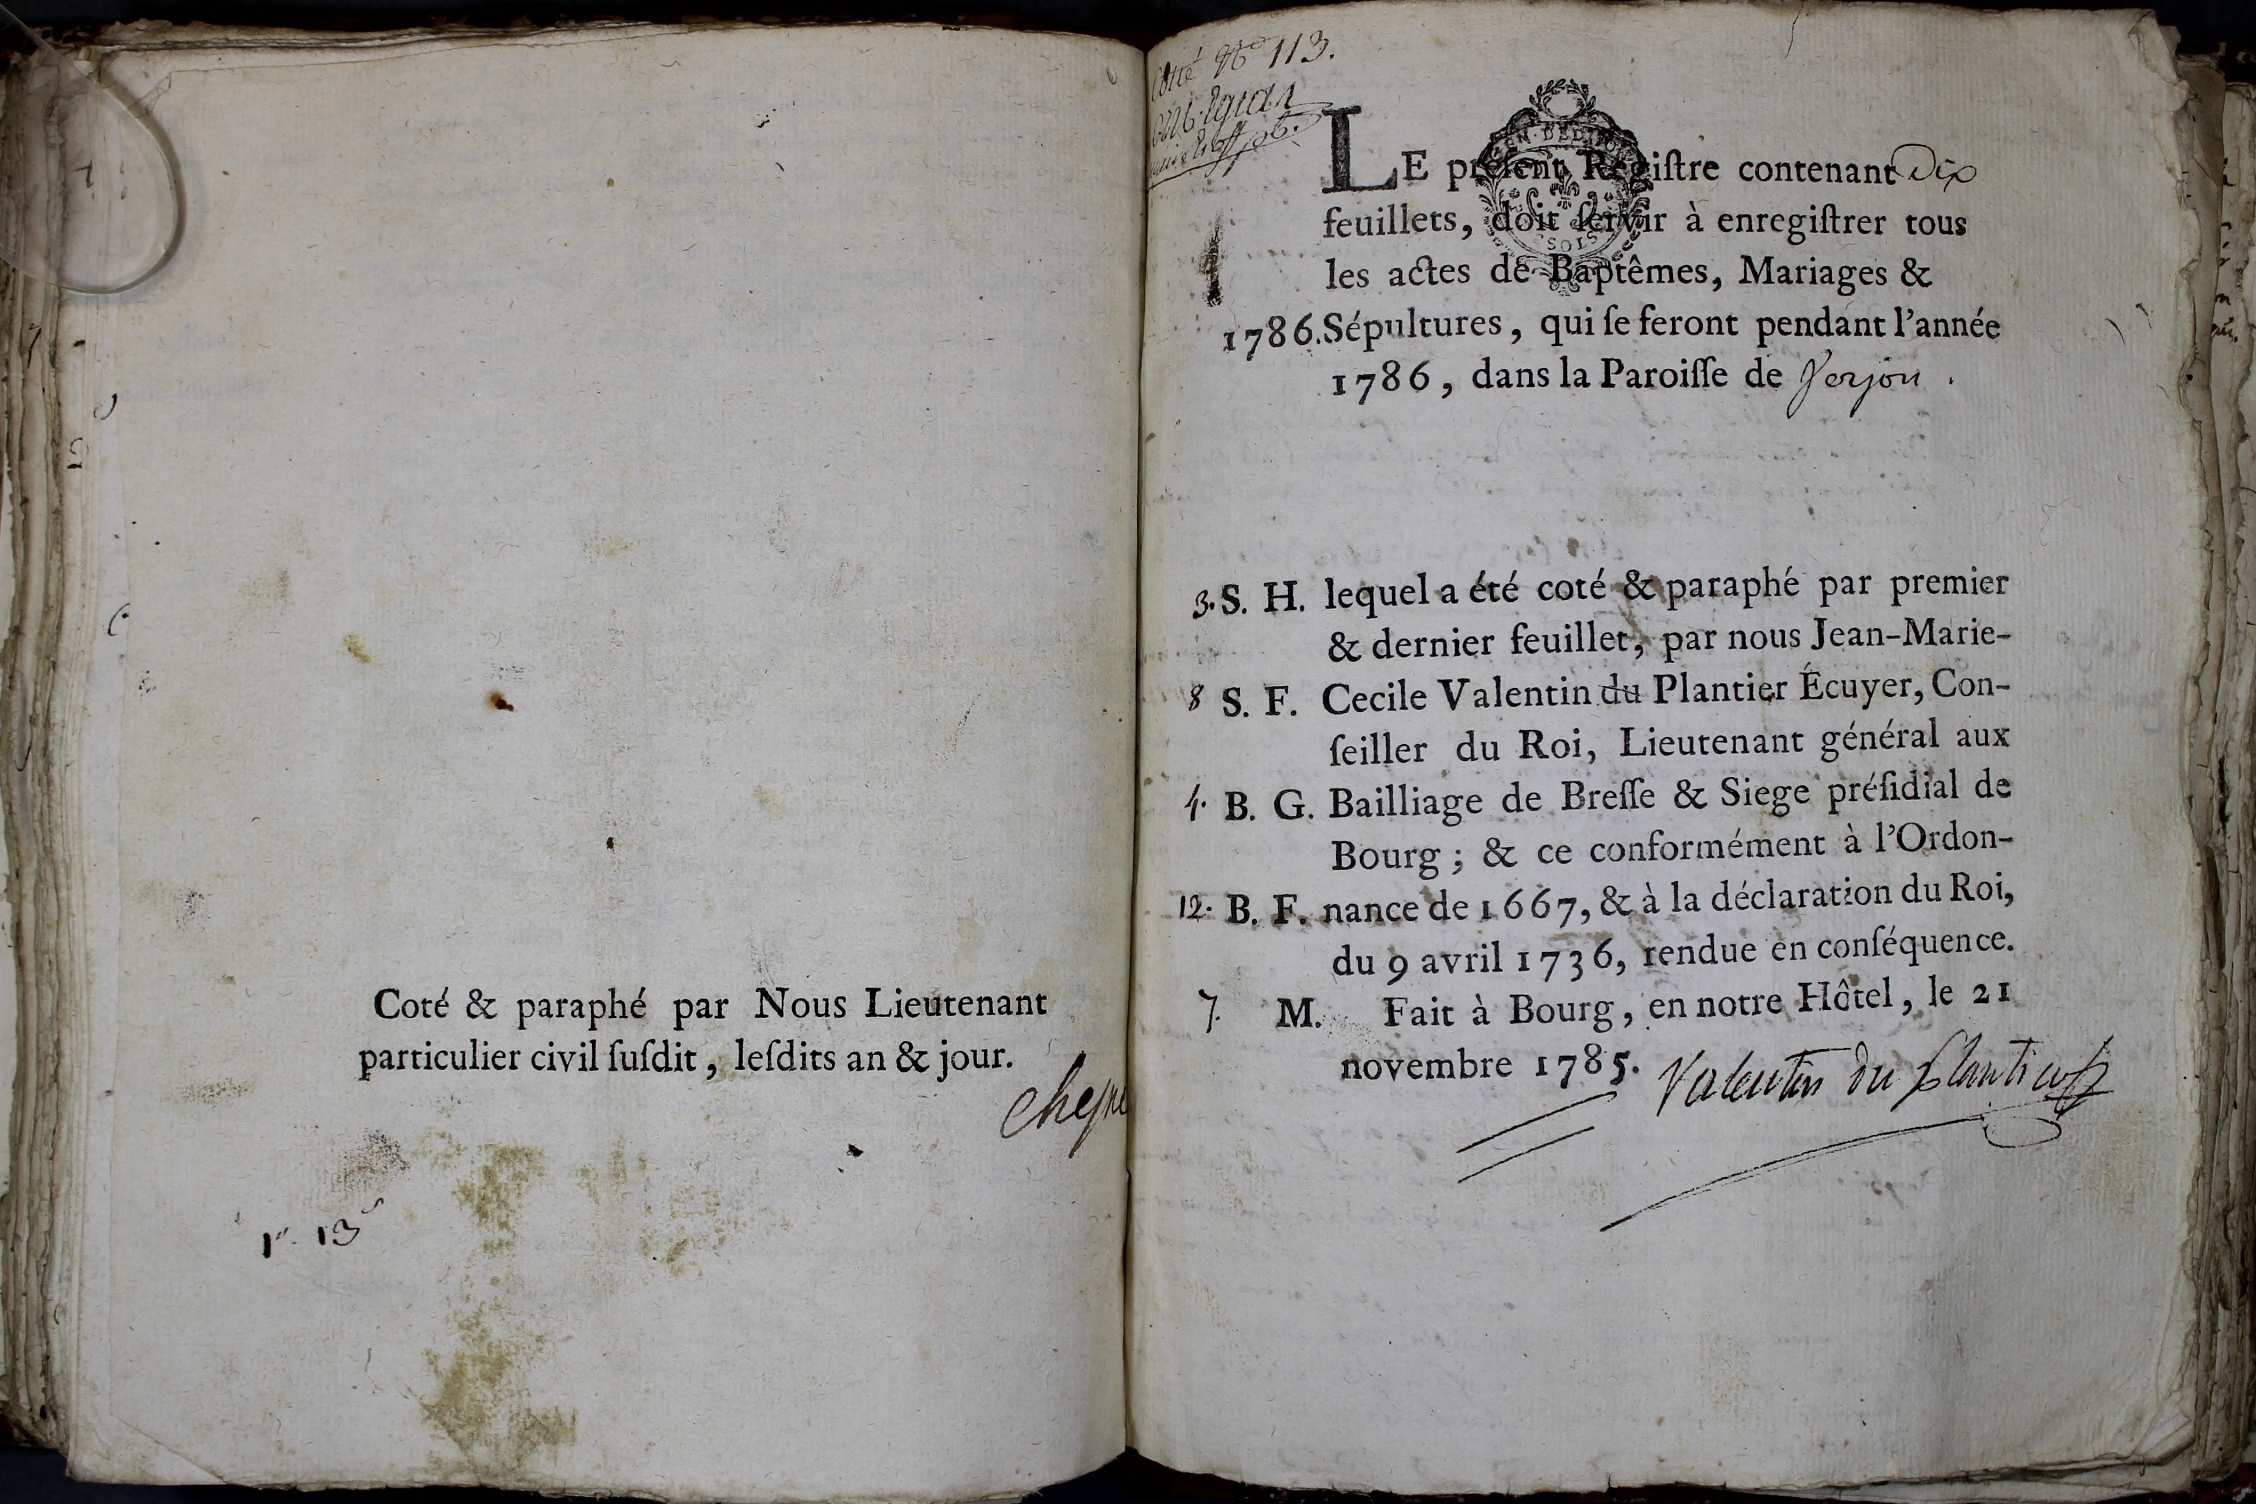 Coté & paraphé par Nous Lieutenant
particulier civil ſuſdit, leſdits an & jour.
1786.
Cotté No 113.
LE préſent Regiſtre contenant Dix
feuillets, doit ſervir à enregiſtrer tous
les actes de Baptêmes, Mariages &
1786. Sépultures, qui ſe feront pendant l'année
1786, dans la Paroiſſe de Verjon.
3. S. H. lequel a été coté & paraphé par premier
& dernier feuillet, par nous Jean-Marie-
8 S. F. Cecile Valentin du Plantier Écuyer, Con-
ſeiller du Roi, Lieutenant général aux
4. B. G. Bailliage de Breſſe & Siege préſidial de
Bourg; & ce conformément à l'Ordon-
12. B. F. nance de 1667, & à la déclaration du Roi,
du 9 avril 1736, rendue en conſéquence.
7. M. Fait à Bourg, en notre Hôtel, le 21
novembre 1785. Valentin du Plantier